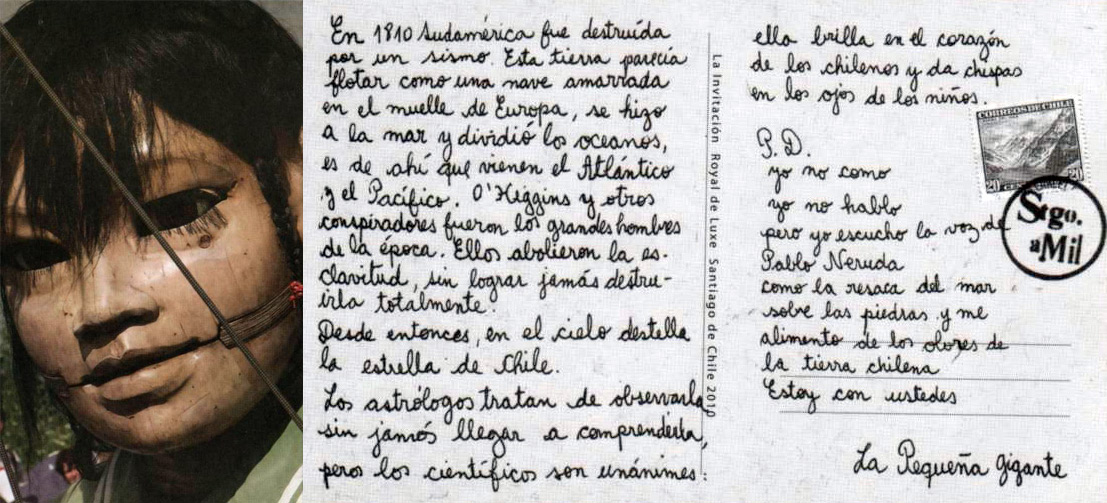 En 1810 Sudamérica fue destruída
por un sismo. Esta tierra parecía
flotar como una nave amarrada
en el muelle de Europa, se hizo
a la mar y dividió los oceanos,
es de ahí que vienen el Atlántico
y el Pacífico. O'Higgins y otros
conspiradores fueron los grandes hombres
de la época. Ellos abolieron la es-
clavitud, sin lograr jamás destru-
irla totalmente.
Desde entonces, en el cielo destella
la estrella de Chile.
Los astrólogos tratan de observarla
sin jamás llegar a comprenderla,
peros los científicos son unánimes:
La Invitación Royal de Luxe Santiago de Chile 2010
ella brilla en el corazón
de los chilenos y da chispas
en los ojos de los niños.
CORREOS DE CHILE
20 20
Stgo.
aMil
P.D.
yo no como
yo no hablo
pero yo escucho la voz de
Pablo Neruda
como la resaca del mar
sobre las piedras y me
alimento de los olores de
la tierra chilena
Estoy con ustedes
La Pequeña gigante